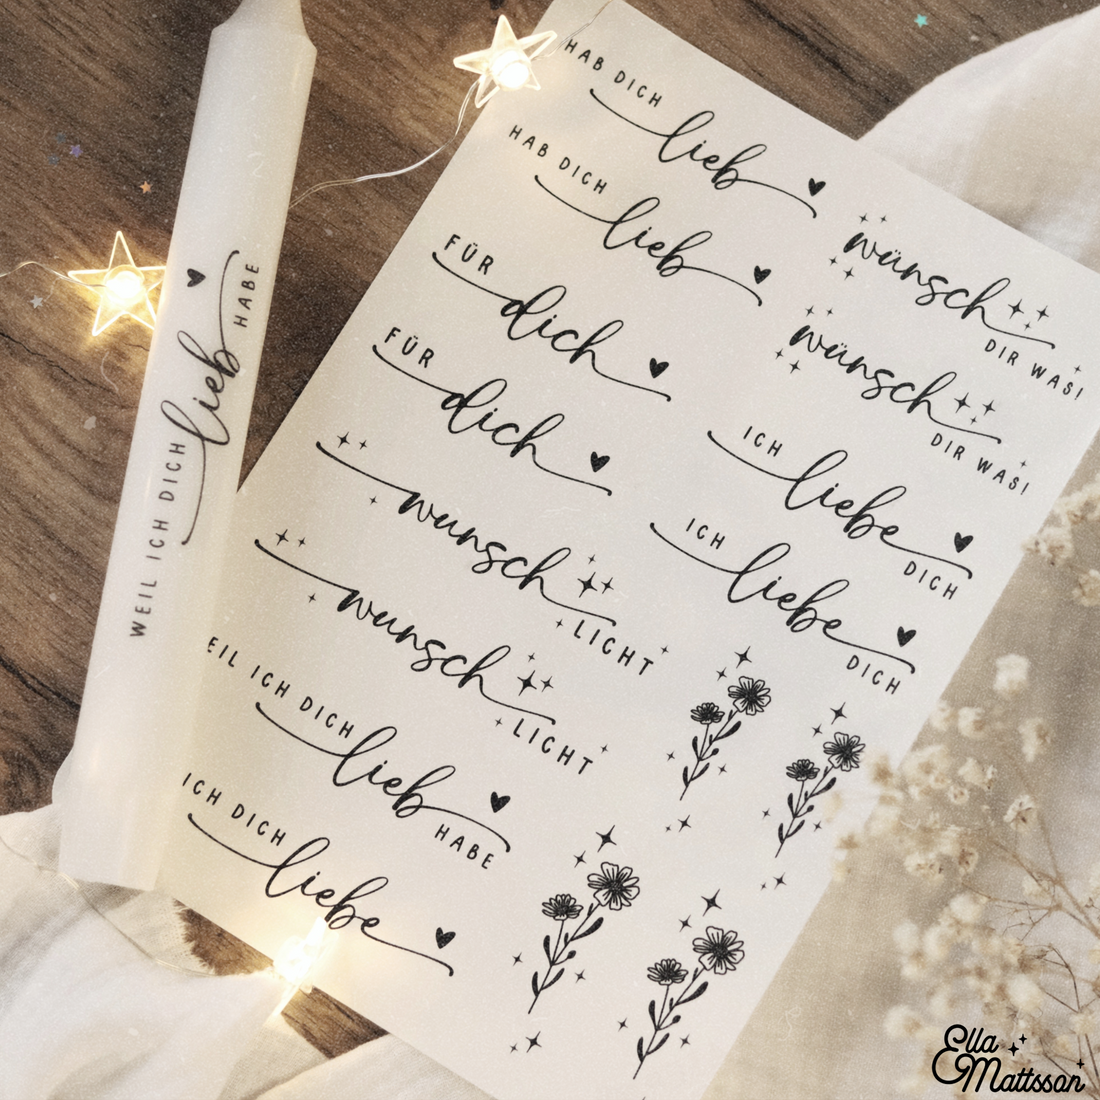 WEIL ICH DICH
lieb
HABE
HAB DICH
lieb
HAB DICH
lieb
FÜR
dich
FÜR
dich
wunsch
LICHT
wunsch
LICHT
EIL ICH DICH
lieb
HABE
ICH DICH
liebe
wünsch
DIR WAS!
wünsch
DIR WAS!
ICH
liebe
DICH
ICH
liebe
DICH
Ella
Mattsson